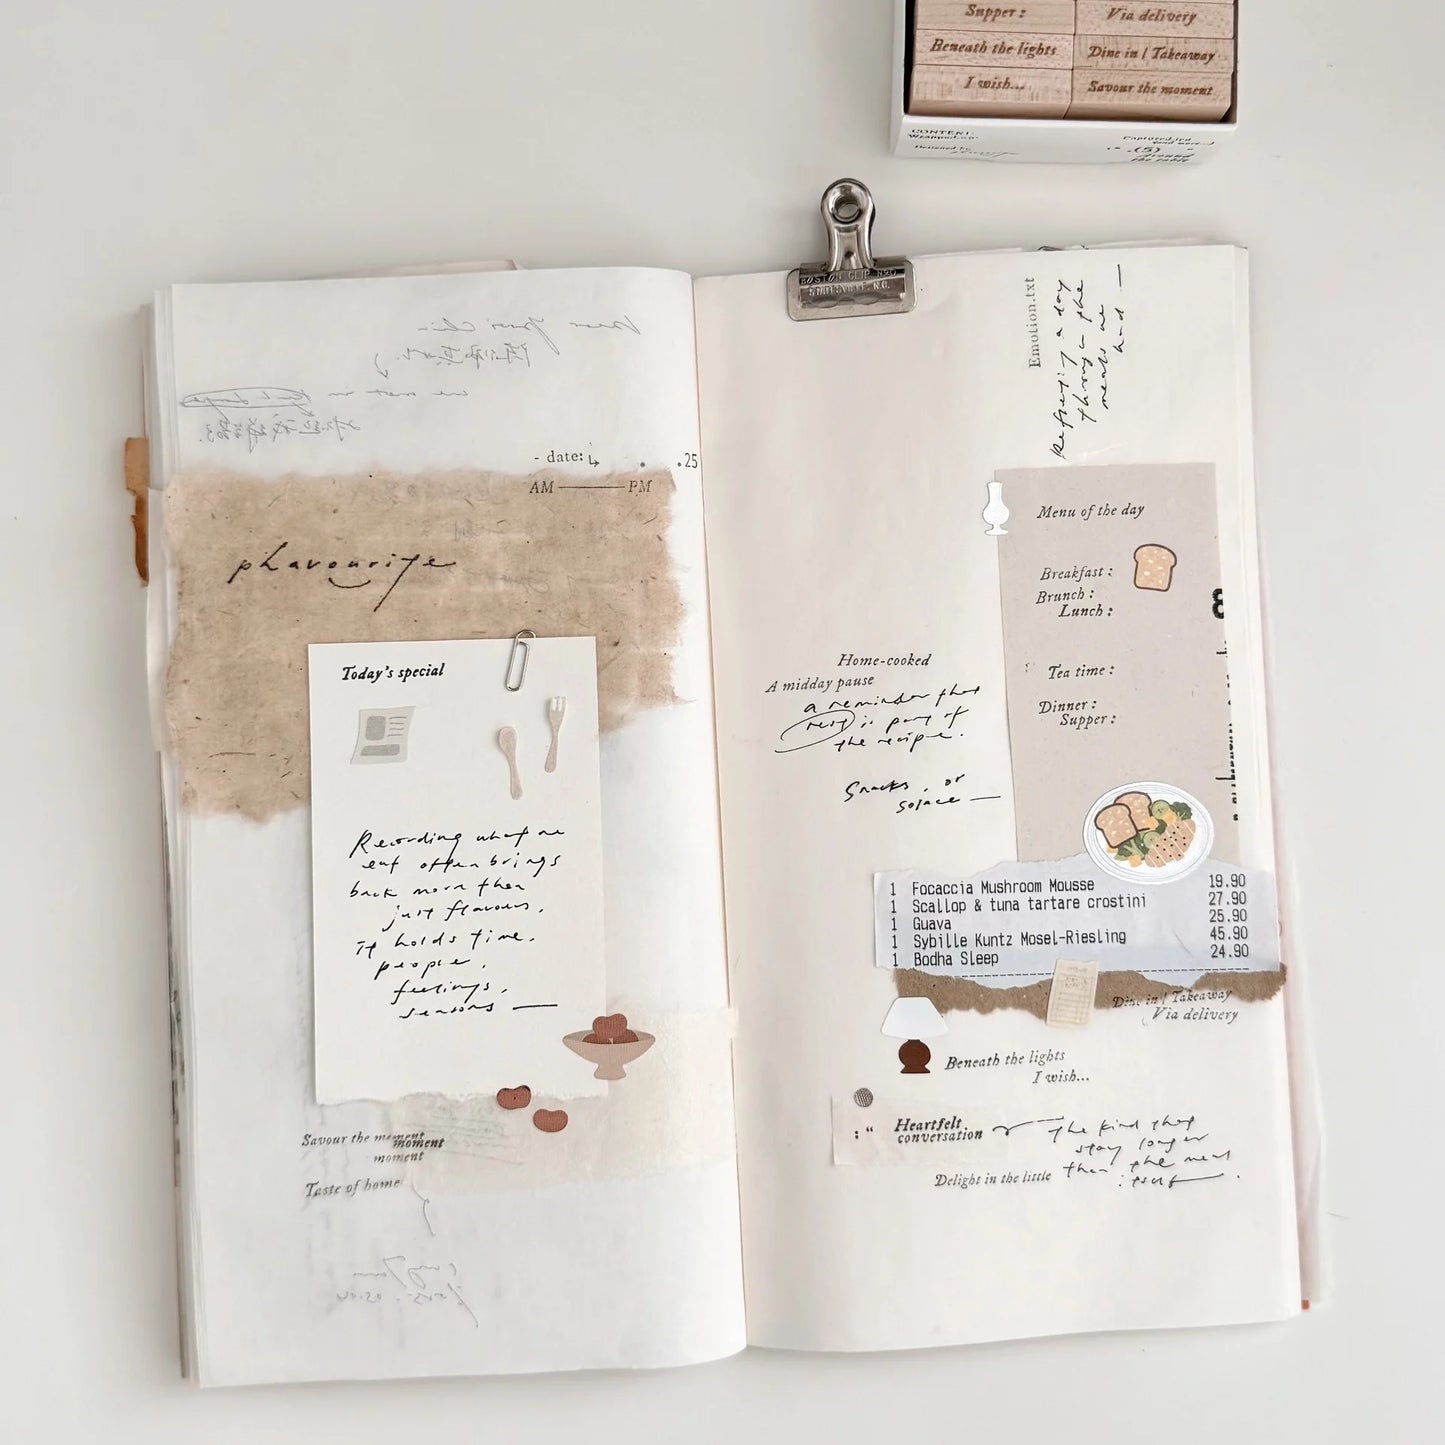 Supper :
Via delivery
Beneath the lights
Dine in | Takeaway
I wish...
Savour the moment
CONTENT:
Designed by
(5)
around
the table
BOSTON CLIP NO2
STATESVILLE, N.C.
- date:
.25
AM PM
phavourite
Today's special
Recording what we
eat often brings
back more than
just flavours.
it holds time,
people,
feelings,
seasons —
Savour the moment
moment
moment
Taste of home
Emotion.txt
a day
through the
meals we
had —
Menu of the day
Breakfast :
Brunch :
Lunch :
Tea time :
Dinner :
Supper :
8
Home-cooked
A midday pause
a reminder that
rest is part of
the recipe.
Snacks, or
solace —
1 Focaccia Mushroom Mousse 19.90
1 Scallop & tuna tartare crostini 27.90
1 Guava 25.90
1 Sybille Kuntz Mosel-Riesling 45.90
1 Bodha Sleep 24.90
Dine in | Takeaway
Via delivery
Beneath the lights
I wish...
: “ Heartfelt
conversation
the kind that
stay longer
than the meal
itself —.
Delight in the little